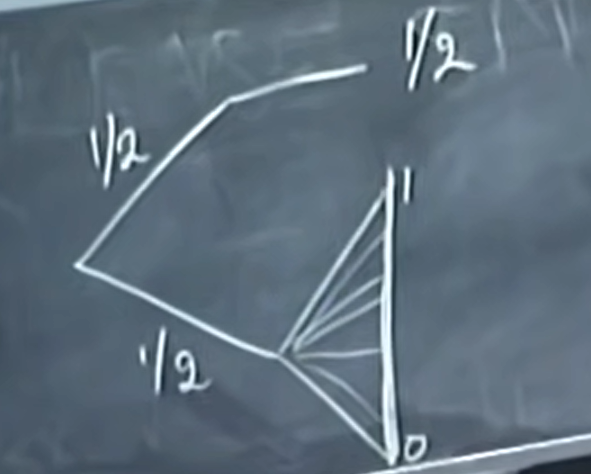 1/2
1/2
1
1/2
0